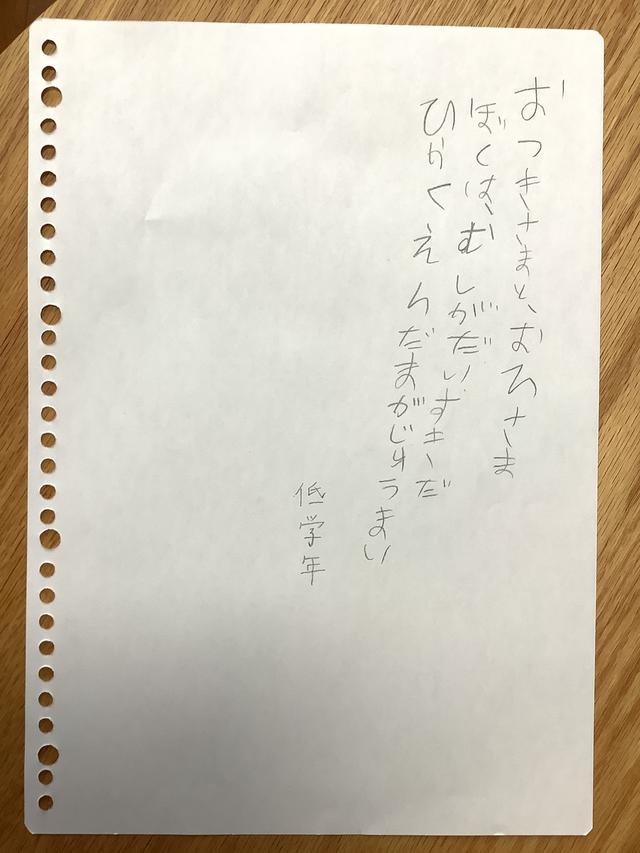 おつきさまと、おひさま
ぼくは、むしがだいすきだ
ひゃくえんだまがじゅうまい
低学年